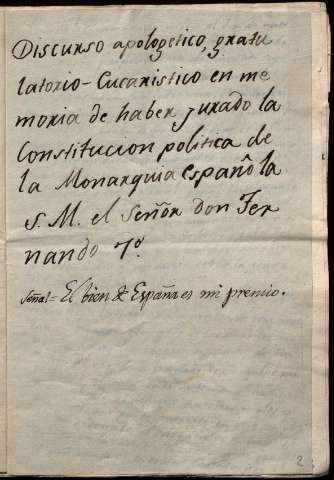 Discurso apologetico, gratu
latorio-Eucaristico en me
moria de haber jurado la
Constitucion politica de
la Monarquia española
S. M. el Señor Don Fer
nando 7º.
Señal = El bien de España es mi premio.
2